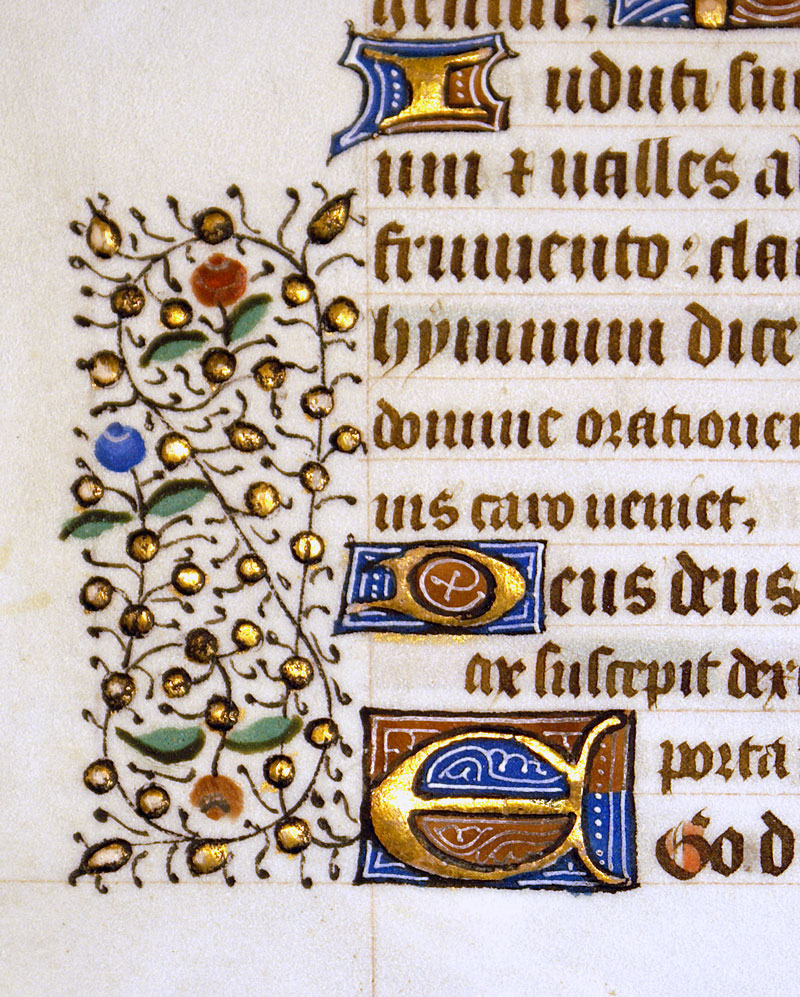 Induti sun
uium ⁊ ualles a
frumento : cla
hymnum dice
domine oratione
nis caro ueniet.
Deus deus
suscepit dex
porta
EGo d